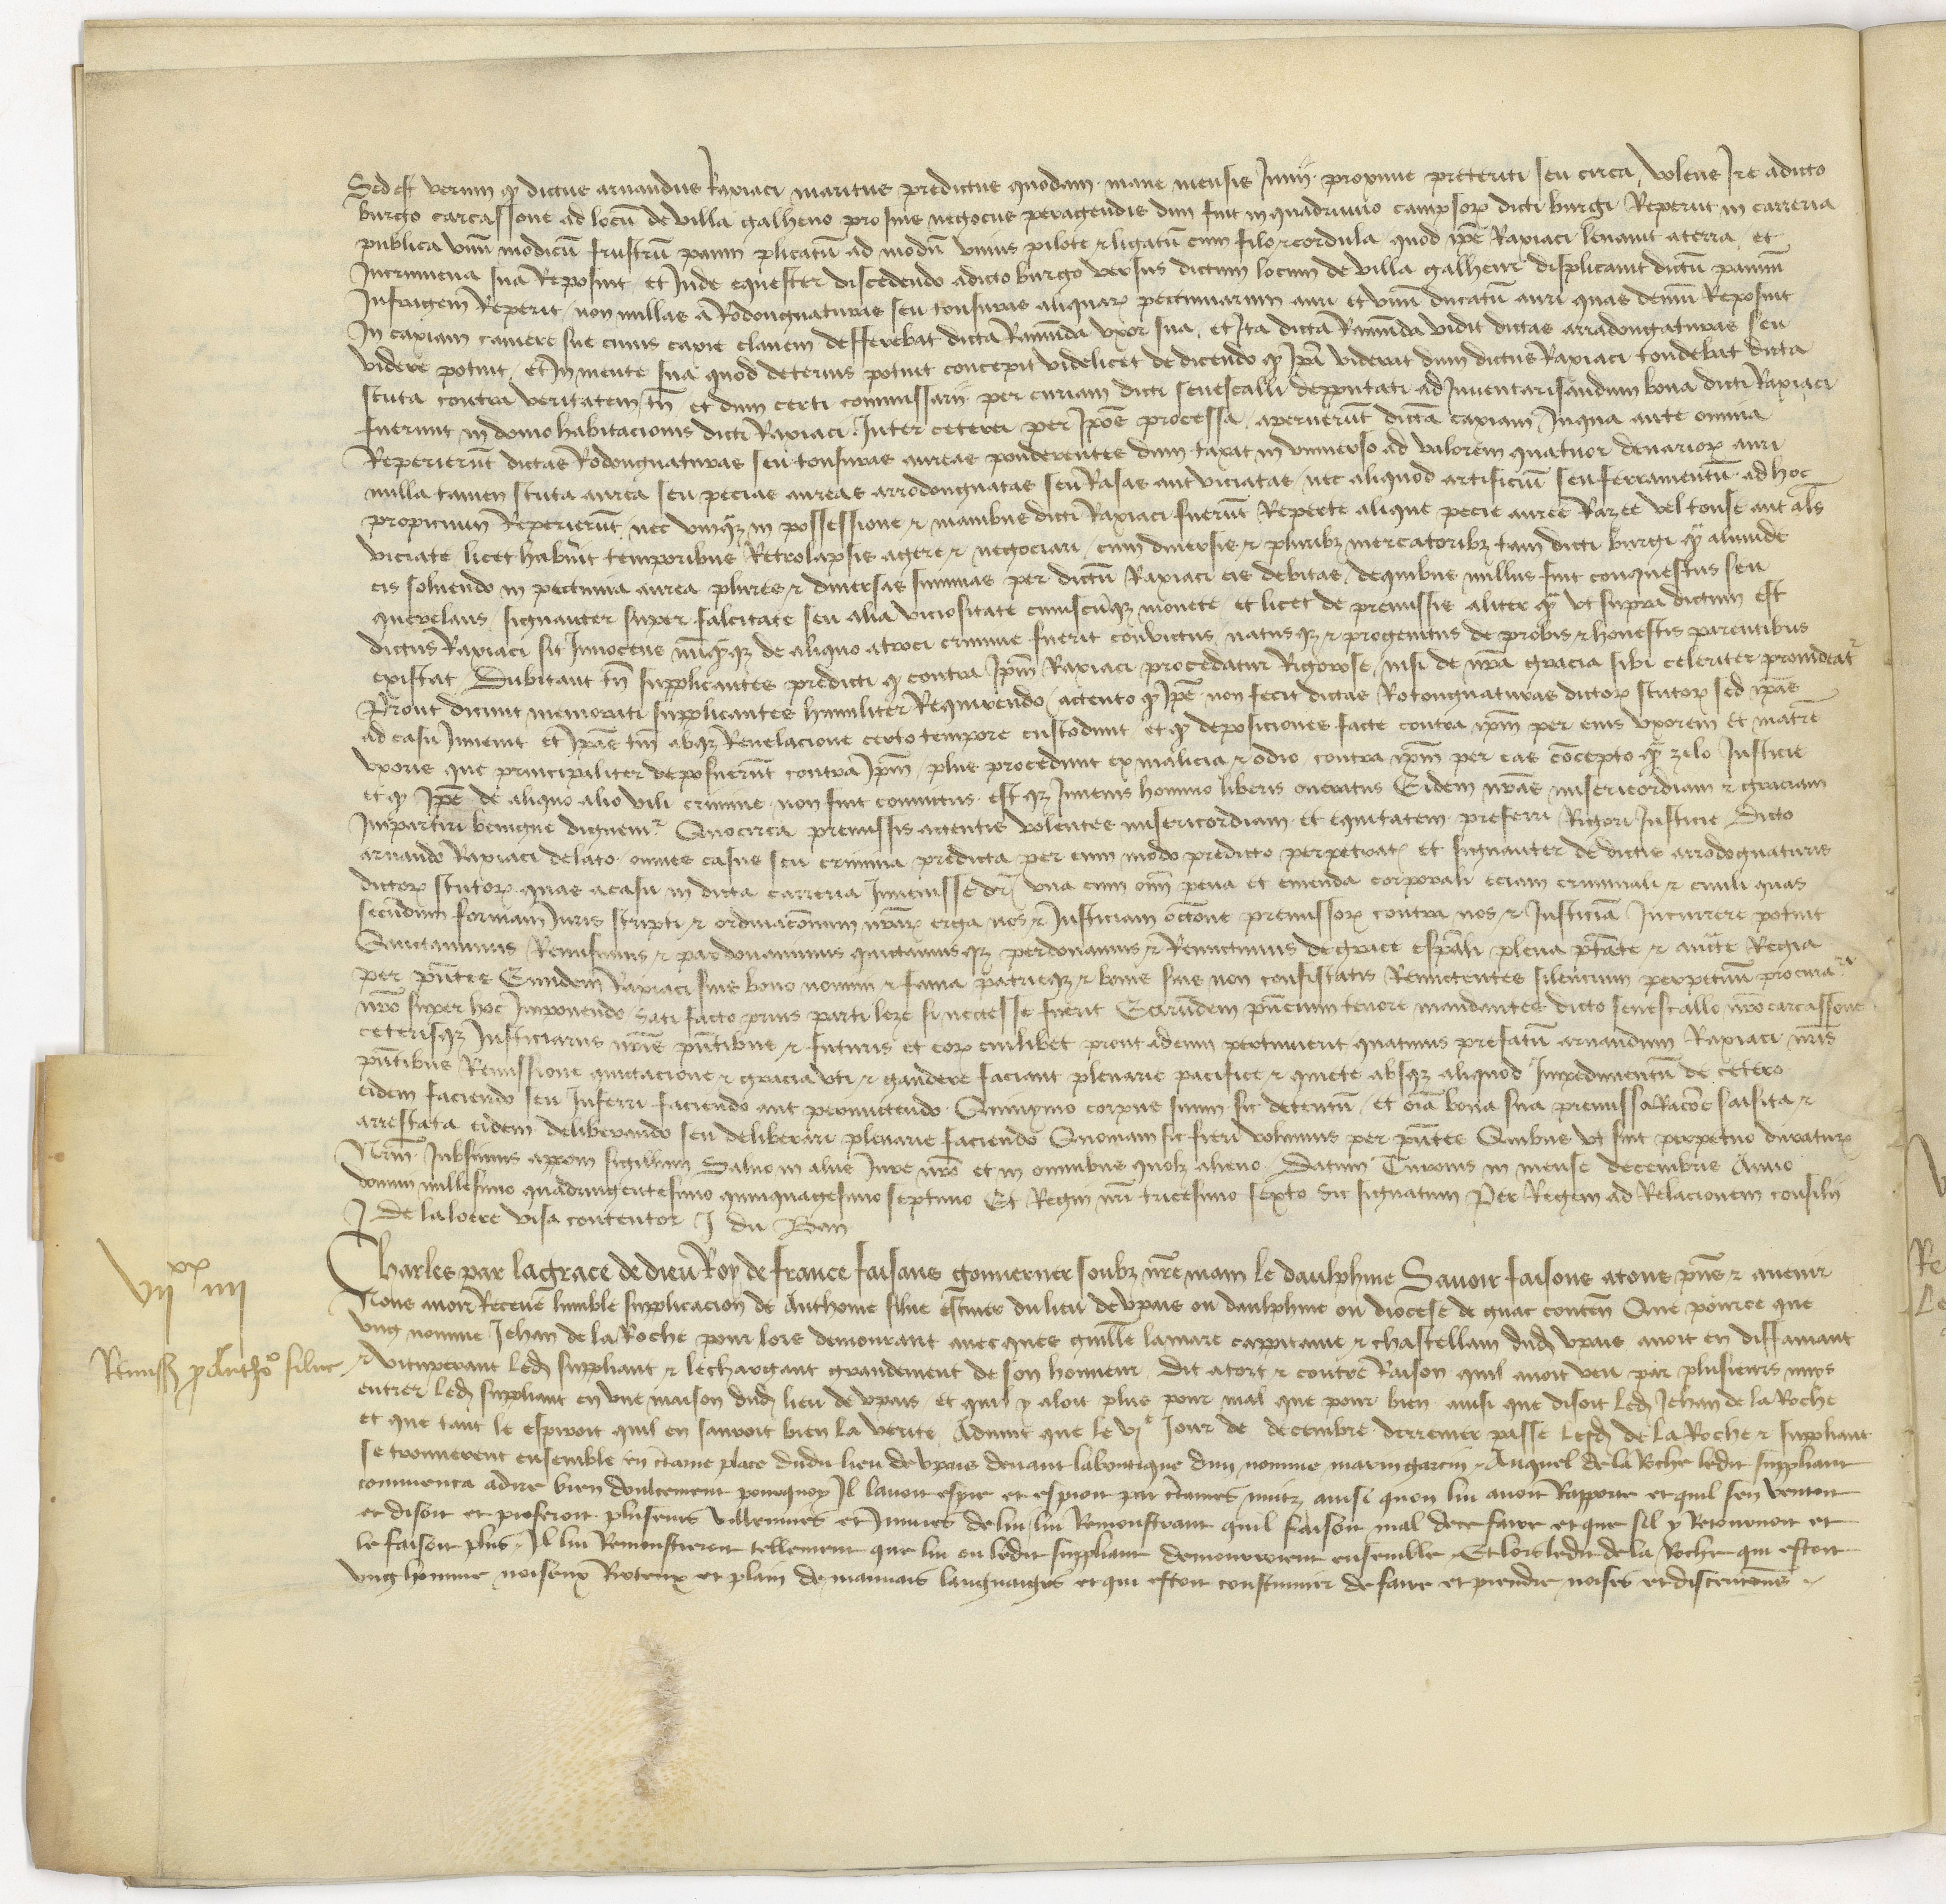 Sed est verum qd dictus arnandus Raxiaci maritus predictus quodam mane mensis Junii proxime preteriti seu circa volens Ire adicto
burgo carcassone ad locū de villa galheno pro suis negociis peragendis dum fuit in quadruuio campsoꝝ dicti burgi Reperiit in carreria
publica vnū modicū frustrū panni plicatū ad modū vnius pilote ⁊ ligatū cum filo ⁊ cordula quod ip̄e Raxiaci leuauit aterra et
Incrumena sua Reposuit et Inde equester discedendo adicto burgo versus dictum locum de villa galhenr displicauit dictū pannū
Insuigem Reperit non nullas a Rodongnaturas seu tonsuras aliquaꝝ peccuniarum auri et vnū ducatū auri quas demū Reposuit
In caxiam camere sue cuius caxie clauem defferebat dicta Ramūda vxor sua et Ita dicta Ramūda vidit dictas arradongaturas seu
videre potuit et In mente sua quod deterius potuit concepit videlicet de dicendo qd Ip̄a viderat dum dictus Raxiaci tondebat dicta
scuta contra veritatem tn̄ et dum certi commissarii per curiam dicti senescalli deputati ad Inuentarisandum bona dicti Raxiaci
fuerunt in domo habitacionis dicti Raxiaci Inter ceterei per Ip̄os processa aperuerūt dictā caxiam Inqua ante omnia
Reperierūt dictas Rodongnaturas seu tonsuras aureas ponderentes dum taxat in vniuerso ad valorem quatuor denarioꝝ auri
nulla tamen scuta aurea seu pecias aureas arrodongnatas seu Rasas aut viciatas nec aliquod artificiū seu ferramentū ad hoc
propicium Reperierūt nec vnqȝ in possessione ⁊ manibus dicti Raxiaci fuerūt Reperte alique pecie auree Razee vel tonse aut al̄s
viciate licet habūit temporibus Retrolapsis agere ⁊ negociari cum diuersis ⁊ pluribȝ mercatoribȝ tam dicti burgi qȝ aliunde
eis soluendo in peccunia aurea plures ⁊ diuersas summas per dictū Raxiaci eis debitas de quibus nullus fuit conquestus seu
querelans signanter super falcitate seu alia viciositate cuiuscūqȝ monete et licet de premissis aliter qȝ vt supra dictum est
dictus Raxiaci sit Innocens nūqȝqȝ de aliquo atroci crimine fuerit conuictus natus qȝ ⁊ progenitus de probis ⁊ honestis parentibus
existat Dubitant tn̄ supplicantes predicti qd contra Ip̄m Raxiaci procedatur Rigorose nisi de nr̄a gracia sibi celeriter prouideat᷑
Prout dicunt memorati supplicantes humiliter Requirendo actento qd Ip̄e non fecit dictas Rotongnaturas dictoꝝ scutoꝝ sed ip̄as
ad casu Inuenit et Ip̄as tm̄ absqȝ Reuelacione certo tempore custodiuit et qd deposiciones facte contra ip̄m per eius vxorem et matrē
vxoris que principaliter deposuerūt contra Ip̄m plus procedunt ex malicia ⁊ odio contra ip̄m per eas cōcepto qȝ zelo Justicie
et qd Ip̄e de aliquo alio vili crimine non fuit conuictus est qȝ Iuuenis homino liberis oneratus Eidem nr̄as misericordiam ⁊ graciam
Impartiri benigne dignem᷑ Quocirca premissis actentis volentes misericordiam et equitatem preferri Rigori Justicie Dicto
arnando Raxiaci delato omnes casus seu crimina predicta per eum modo predicto perpetrat et signanter de dictis arrodognaturis
dictoꝝ scutoꝝ quas acasu in dicta carreria Inuenisse dr̄ vna cum om̄i pena et emenda corporali eciam criminali ⁊ ciuili quas
secundum formam Juris scripti ⁊ ordinacōnum nr̄aꝝ erga nos ⁊ Justiciam occ̄one premissoꝝ contra nos ⁊ Justiciā Incurrere potuit
Quictauimus Remisimus ⁊ pardonauimus quictamusqȝ perdonamus ⁊ Remictimus de grace esp̄ali plena p̄tate ⁊ auc̄te Regia
per pn̄tes Eiundem Raxiaci suis bono nomini ⁊ fama patrieqȝ ⁊ bonis suis non confiscatis Remictentes silencium perpetuū procura
nr̄o super hoc Imponendo Satifacto prius parti leze si neccesse fuerit Earūdem pn̄cium tenore mandantes dicto senescallo nr̄o carcassone
ceterisqȝ Justiciariis nr̄is pn̄tibus ⁊ futuris et eoꝝ cuilibet prout ad eum pertinuerit quatinus prefatū arnandum Raxiaci nr̄is
pn̄tibus Remissione quictacione ⁊ gracia vti ⁊ gaudere faciant plenarie pacifice ⁊ quiete absqȝ aliquod Impedimentū de cetero
eidem faciendo seu Inferri faciendo aut permictendo Quinymo corpus suum sic detentū et oīa bona sua premissa Racōe saisita ⁊
arrestata eidem deliberando seu deliberari plenarie faciendo Quoniam sic fieri volumus per pn̄tes Quibus vt sint perpetuo duratuꝝ
Nr̄m Iussimus appom sigillum Saluo in aliis Jure nr̄o et in omnibus quolȝ alieno Datum Turonis in mense decembris Anno
domini millesimo quadringentesimo quinquagesimo septimo Et Regni nr̄i tricesimo sexto Sic signatum Per Regem ad Relacionem consilii
J De laloere visa contentor J du Ban
Charles par la grace de dieu Roy de france faisans gouuerner soubz nr̄e main le daulphine Sauoir faisons atous pn̄s ⁊ auenir
vii xx iiii
Nous auoir Receue humble supplicacion de Anthoine silue estmer du lieu de vpais ou daulphine ou diocese de gnac conten̄ Que pource que
vng nomme Jehan de la Roche pour lors demourant auecques guille lamare cappitaine ⁊ chastellain dud vpais auoit en diffamant
Remiss p Anthoº silue
⁊ vituperant led suppliant ⁊ le chargant grandement de son honneur Dit atort ⁊ contre Raison quil auoit veu par plusieurs nuys
entrer led suppliant en vne maison dud lieu de vpais et quil y aloit plus pour mal que pour bien ainsi que disoit led Jehan de la Roche
et que tant le espiroit quil en sauroit bien la verite Aduint que le vjᵉ Jour de decembre derrenier passe Lesd de la Roche ⁊ suppliant
se trouuerent ensemble en c̄taine place dudit lieu de vpais deuant la boutique dun nomme marin garcin Auquel de la Roche ledit suppliant
commenca adire bien doulcement pourquoy Il lauoit espie et espioit par c̄taines nuitz ainsi quon lui auoit Rapporte et quil sen ventoit
et disoit et proferoit plusieurs villennies et Iniures de lui lui Remonstrant quil faisoit mal de ce faire et que sil y Retournoit et
le faisoit plus Il lui Remonstreroit tellement que lui ou ledit suppliant demoureroient ensemble Et lors ledit de la Roche qui estoit
vng homme noiseux Rioteux et plain de mauuais languaiges et qui estoit coustumier de faire et prendre noises et discencōns